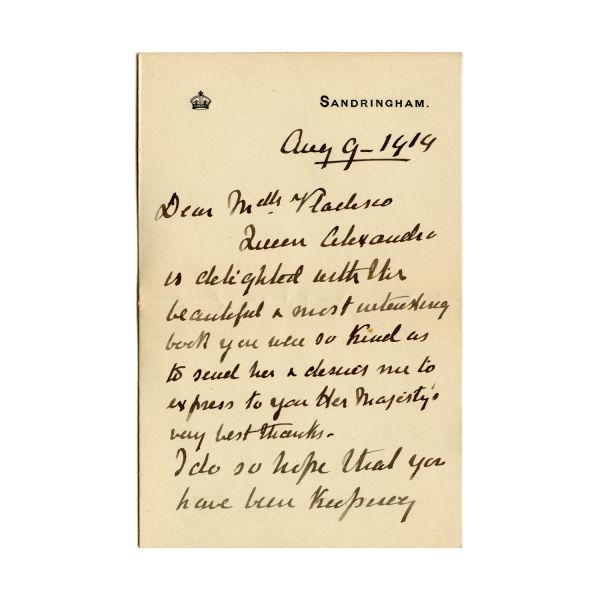 SANDRINGHAM.
Aug 9 - 1919
Dear Mdlle Vlachsco
Queen Alexandra
is delighted with the
beautiful & most interesting
book you were so kind as
to send her & desires me to
express to you Her Majesty's
very best thanks.
I do so hope that you
have been